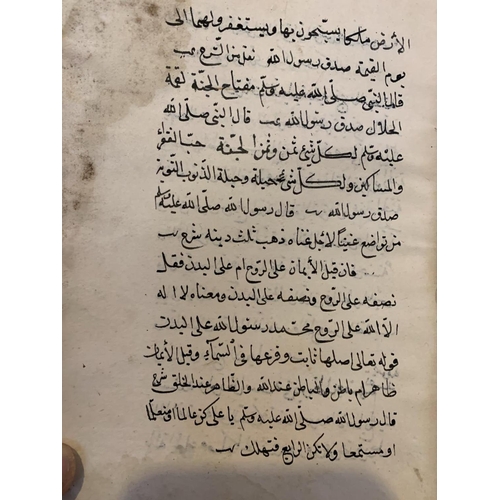 الأرض ملكا يسبّحون بها ويستغفر ولهما الى
يوم القيمة صدق رسول الله نقل من الشرح
قال النبى صلّى الله عليه وسلّم مفتاح الجنّة لقمة
الحلال صدق رسول الله قال النبّى صلّى الله
عليه وسلّم لكلّ شئ ثمن وثمن الجنة حبّ الفقراء
والمساكين ولكلّ شئ حيلة وحيلة الذنوب التوبة
صدق رسول الله قال رسول الله صلّى الله عليه وسلم
من تواضع غنيّا لاجل غناه ذهب ثلث دينه شرح
فان قيل الأيمان على الرّوح ام على البدن فقل
نصفه على الروح ونصفه على البدن ومعناه لا اله
الاّ الله على الرّوح محمّد رسول الله على البدن
قوله تعالى اصلها ثابت وفرعها فى السّمآء وقيل الأيمان
ظاهر ام باطن والباطن عند الله والظاهر عند الخلق شرح
قال رسول الله صلى الله عليه وسلم يا على كن عالما او متعلّما
او مستمعا ولا تكن الرابع فتهلك